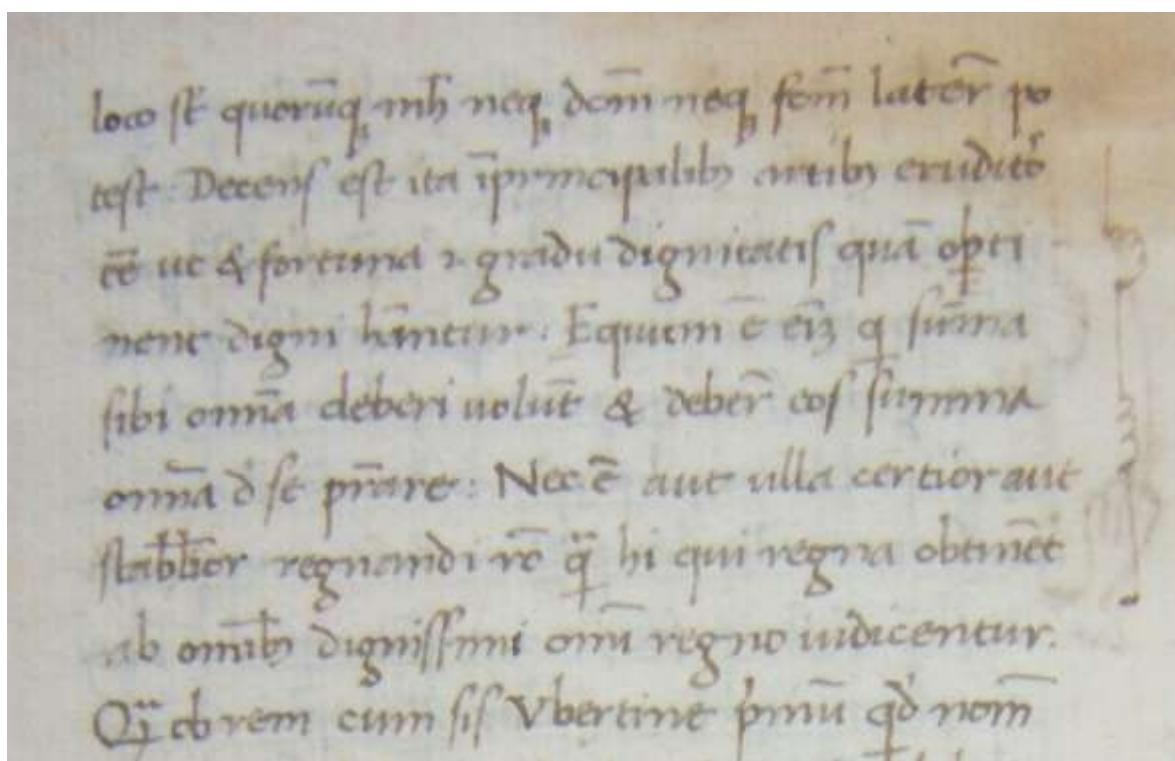 loco st̄ quorūq̨ nih̄ neq̨ dcm̄ neq̨ fcm̄ later̄ po
test. Decens est ita ī principalib᷒ artib᷒ erudito᷒
ēē ut & fortuna ⁊ gradu dignitatis quā opti
nent digni hn̄antur. Equum ē eīꝫ q sum̄a
sibi om̄ia deberi uolūt & deber̄ eos summa
om̄ia d̄ se pr̄are: Nec ē aut ulla certior aut
stabb̄ior regnandi rō q̄ hi qui regna obtinēt
ab om̄ib᷒ dignissimi om̄i regno iudicentur.
Qr̄ ob rem cum sis Vbertine p̓mū qd̓ nom̄